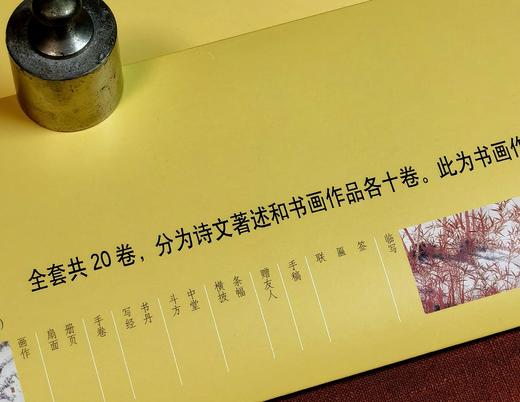 全套共20卷，分为诗文著述和书画作品各十卷。此为书画作
临写
签
匾
联
手稿
赠友人
条幅
横披
中堂
斗方
书丹
写经
手卷
册页
扇面
画作